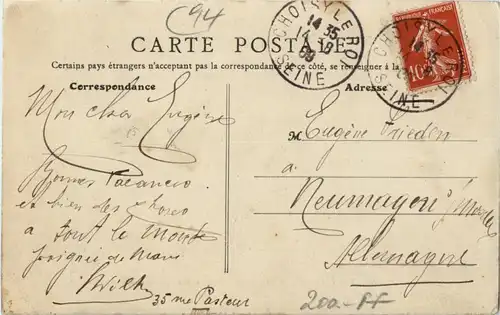 (94
CARTE POSTALE
Certains pays étrangers n'acceptant pas la correspondance de ce côté, se renseigner à la
Correspondance
Adresse
CHOISY LE ROI
14 35
SEINE
CHOISY LE ROI
SEINE
REPUBLIQUE FRANÇAISE
10
Mon cher Eugène
Bonnes Vacances
et bien des choses
à tout le monde
poignée de main
35 rue Pasteur
M Eugène Frieden
à
Neumagen s/ Moselle
Allemagne
200.- FF